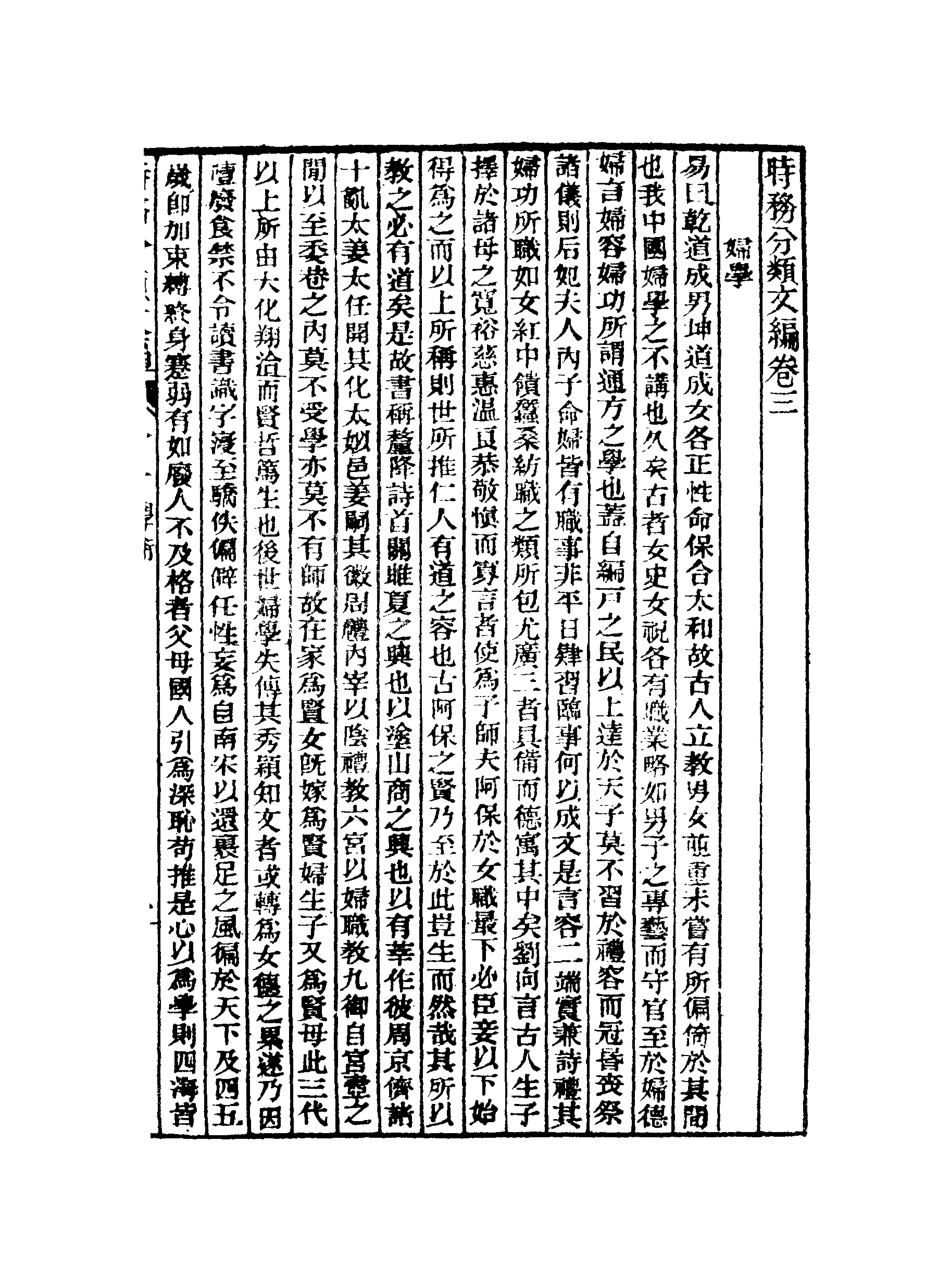 時務分類文編卷三
婦學
易曰乾道成男坤道成女各正性命保合太和故古人立教男女並重未嘗有所偏倚於其間
也我中國婦學之不講也久矣古者女史女祝各有職業略如男子之專藝而守官至於婦德
婦言婦容婦功所謂通方之學也蓋自編戸之民以上達於天子莫不習於禮容而冠昏喪祭
諸儀則后妃夫人內子命婦皆有職事非平日肄習臨事何以成文是言容二端實兼詩禮其
婦功所職如女紅中饋蠶桑紡職之類所包尤廣三者具備而德寓其中矣劉向言古人生子
擇於諸母之寬裕慈惠温良恭敬愼而寡言者使爲子師夫阿保於女職最下必臣妾以下始
得爲之而以上所稱則世所推仁人有道之容也古阿保之賢乃至於此豈生而然哉其所以
教之必有道矣是故書稱釐降詩首關雎夏之興也以塗山商之興也以有莘作彼周京儕諸
十亂太姜太任開其化太姒邑姜嗣其徽周禮內宰以陰禮教六宮以婦職教九御自宮壼之
間以至委巷之內莫不受學亦莫不有師故在家爲賢女旣嫁爲賢婦生子又爲賢母此三代
以上所由大化翔洽而賢哲篤生也後世婦學失傳其秀穎知文者或轉爲女德之累遂乃因
噎廢食禁不令讀書識字浸至驕佚偏僻任性妄爲自南宋以還裹足之風徧於天下及四五
歲卽加束縛終身蹇弱有如廢人不及格者父母國人引爲深恥苟推是心以爲學則四海皆
學術